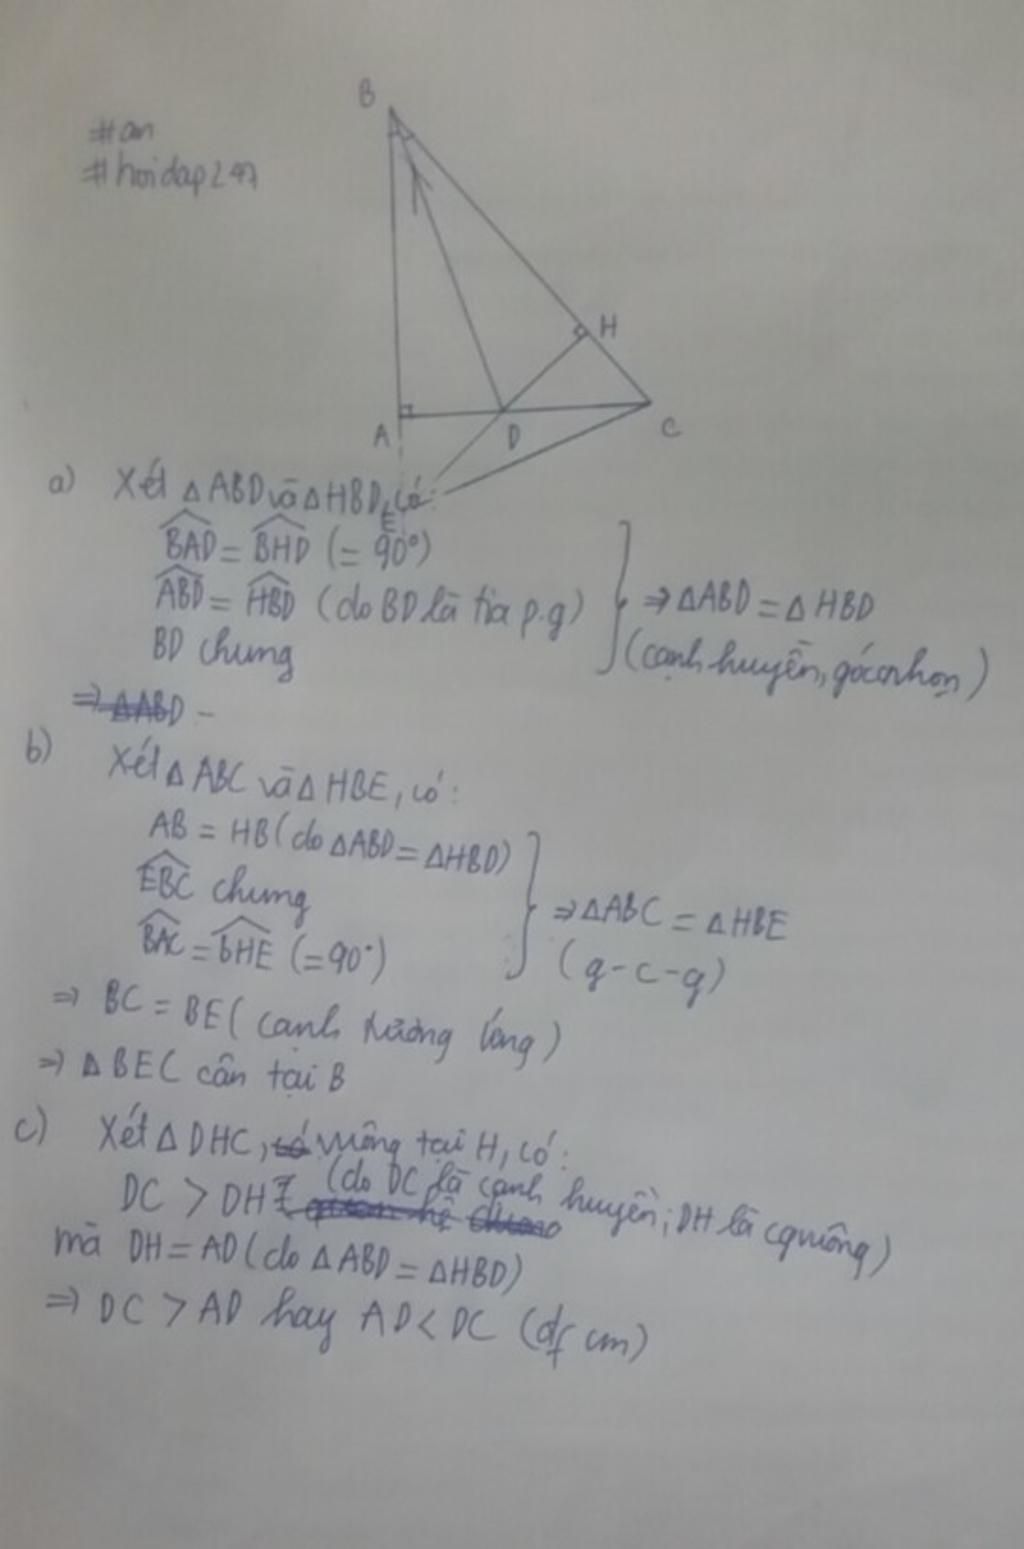 #an
#hoidap247
B
H
A
D
C
E
a) Xét △ABD và △HBD, có:
BAD = BHD (= 90°)
ABD = HBD (do BD là tia p.g)
BD chung
⇒ △ABD = △HBD
(cạnh huyền, góc nhọn)
⇒ △ABD -
b)
Xét △ABC và △HBE, có:
AB = HB (do △ABD = △HBD)
EBC chung
BAC = bHE (=90°)
⇒ △ABC = △HBE
(g-c-g)
⇒ BC = BE (cạnh tương ứng)
⇒ △BEC cân tại B
c) Xét △DHC, có vuông tại H, có:
DC > DH (do DC là cạnh huyền; DH là cgvuông)
mà DH = AD (do △ABD = △HBD)
⇒ DC > AD hay AD < DC (đfcm)